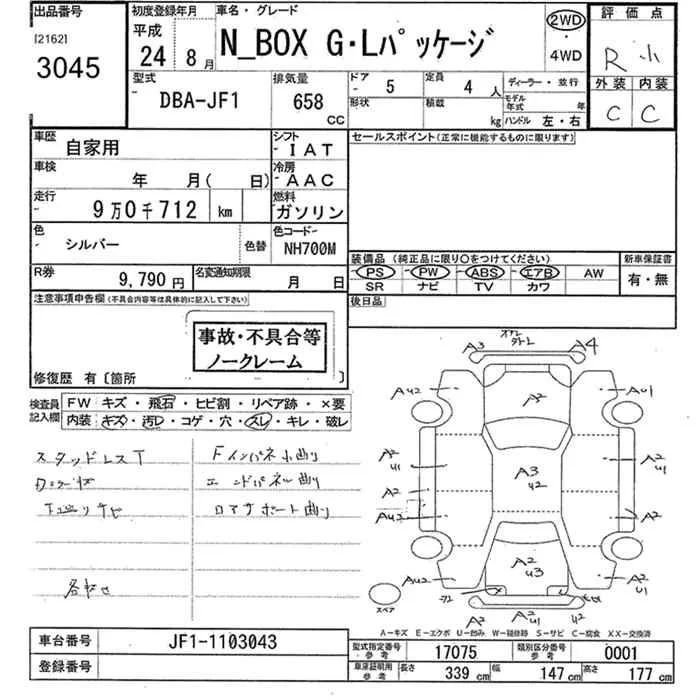 出品番号
[2162]
3045
初度登録年月
平成
24 8 月
車名・グレード
N_BOX G・Lパッケージ
2WD
・
4WD
評価点
R 小
外装 内装
C C
型式
DBA-JF1
排気量
658
CC
ドア 5
定員 4 人
形状
積載 kg
ディーラー・並行
モデル年式 年
ハンドル 左・右
車歴 自家用
シフト IAT
車検 年 月( 日)
冷房 AAC
走行 9万0千712 km
燃料 ガソリン
色 シルバー 色替
色コード NH700M
R券 9,790 円
名変通知期限 月 日
セールスポイント(正常に機能するものに限ります)
装備品(純正品に限り○をつけてください)
PS ・ PW ・ ABS ・ エアB ・ AW
SR ナビ TV カワ
新車保証書
有・無
後日品
注意事項申告欄(不具合内容等は具体的に記入して下さい)
事故・不具合等
ノークレーム
修復歴 有〔箇所 〕
検査員記入欄
FW キズ・飛石・ヒビ割・リペア跡・×要
内装 キズ・汚レ・コゲ・穴・スレ・キレ・破レ
スタッドレスT
Fインパネ小曲り
エンドパネル曲り
A3 A4
AU2 A2 AU1
A2 U1 A3 U2 A2 U1
A2
AU2 A2
AU2 A2 U3 A2 U1
A2 A2 U1 U2
スペア
A-キズ E-エクボ U-凹み W-補修跡 S-サビ C-腐食 XX-交換済
車台番号 JF1-1103043
登録番号
型式指定番号 参考 17075
類別区分番号 参考 0001
車庫証明用 参考 長さ 339 cm 幅 147 cm 高さ 177 cm